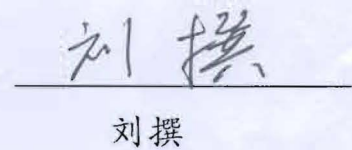 刘撰
刘撰